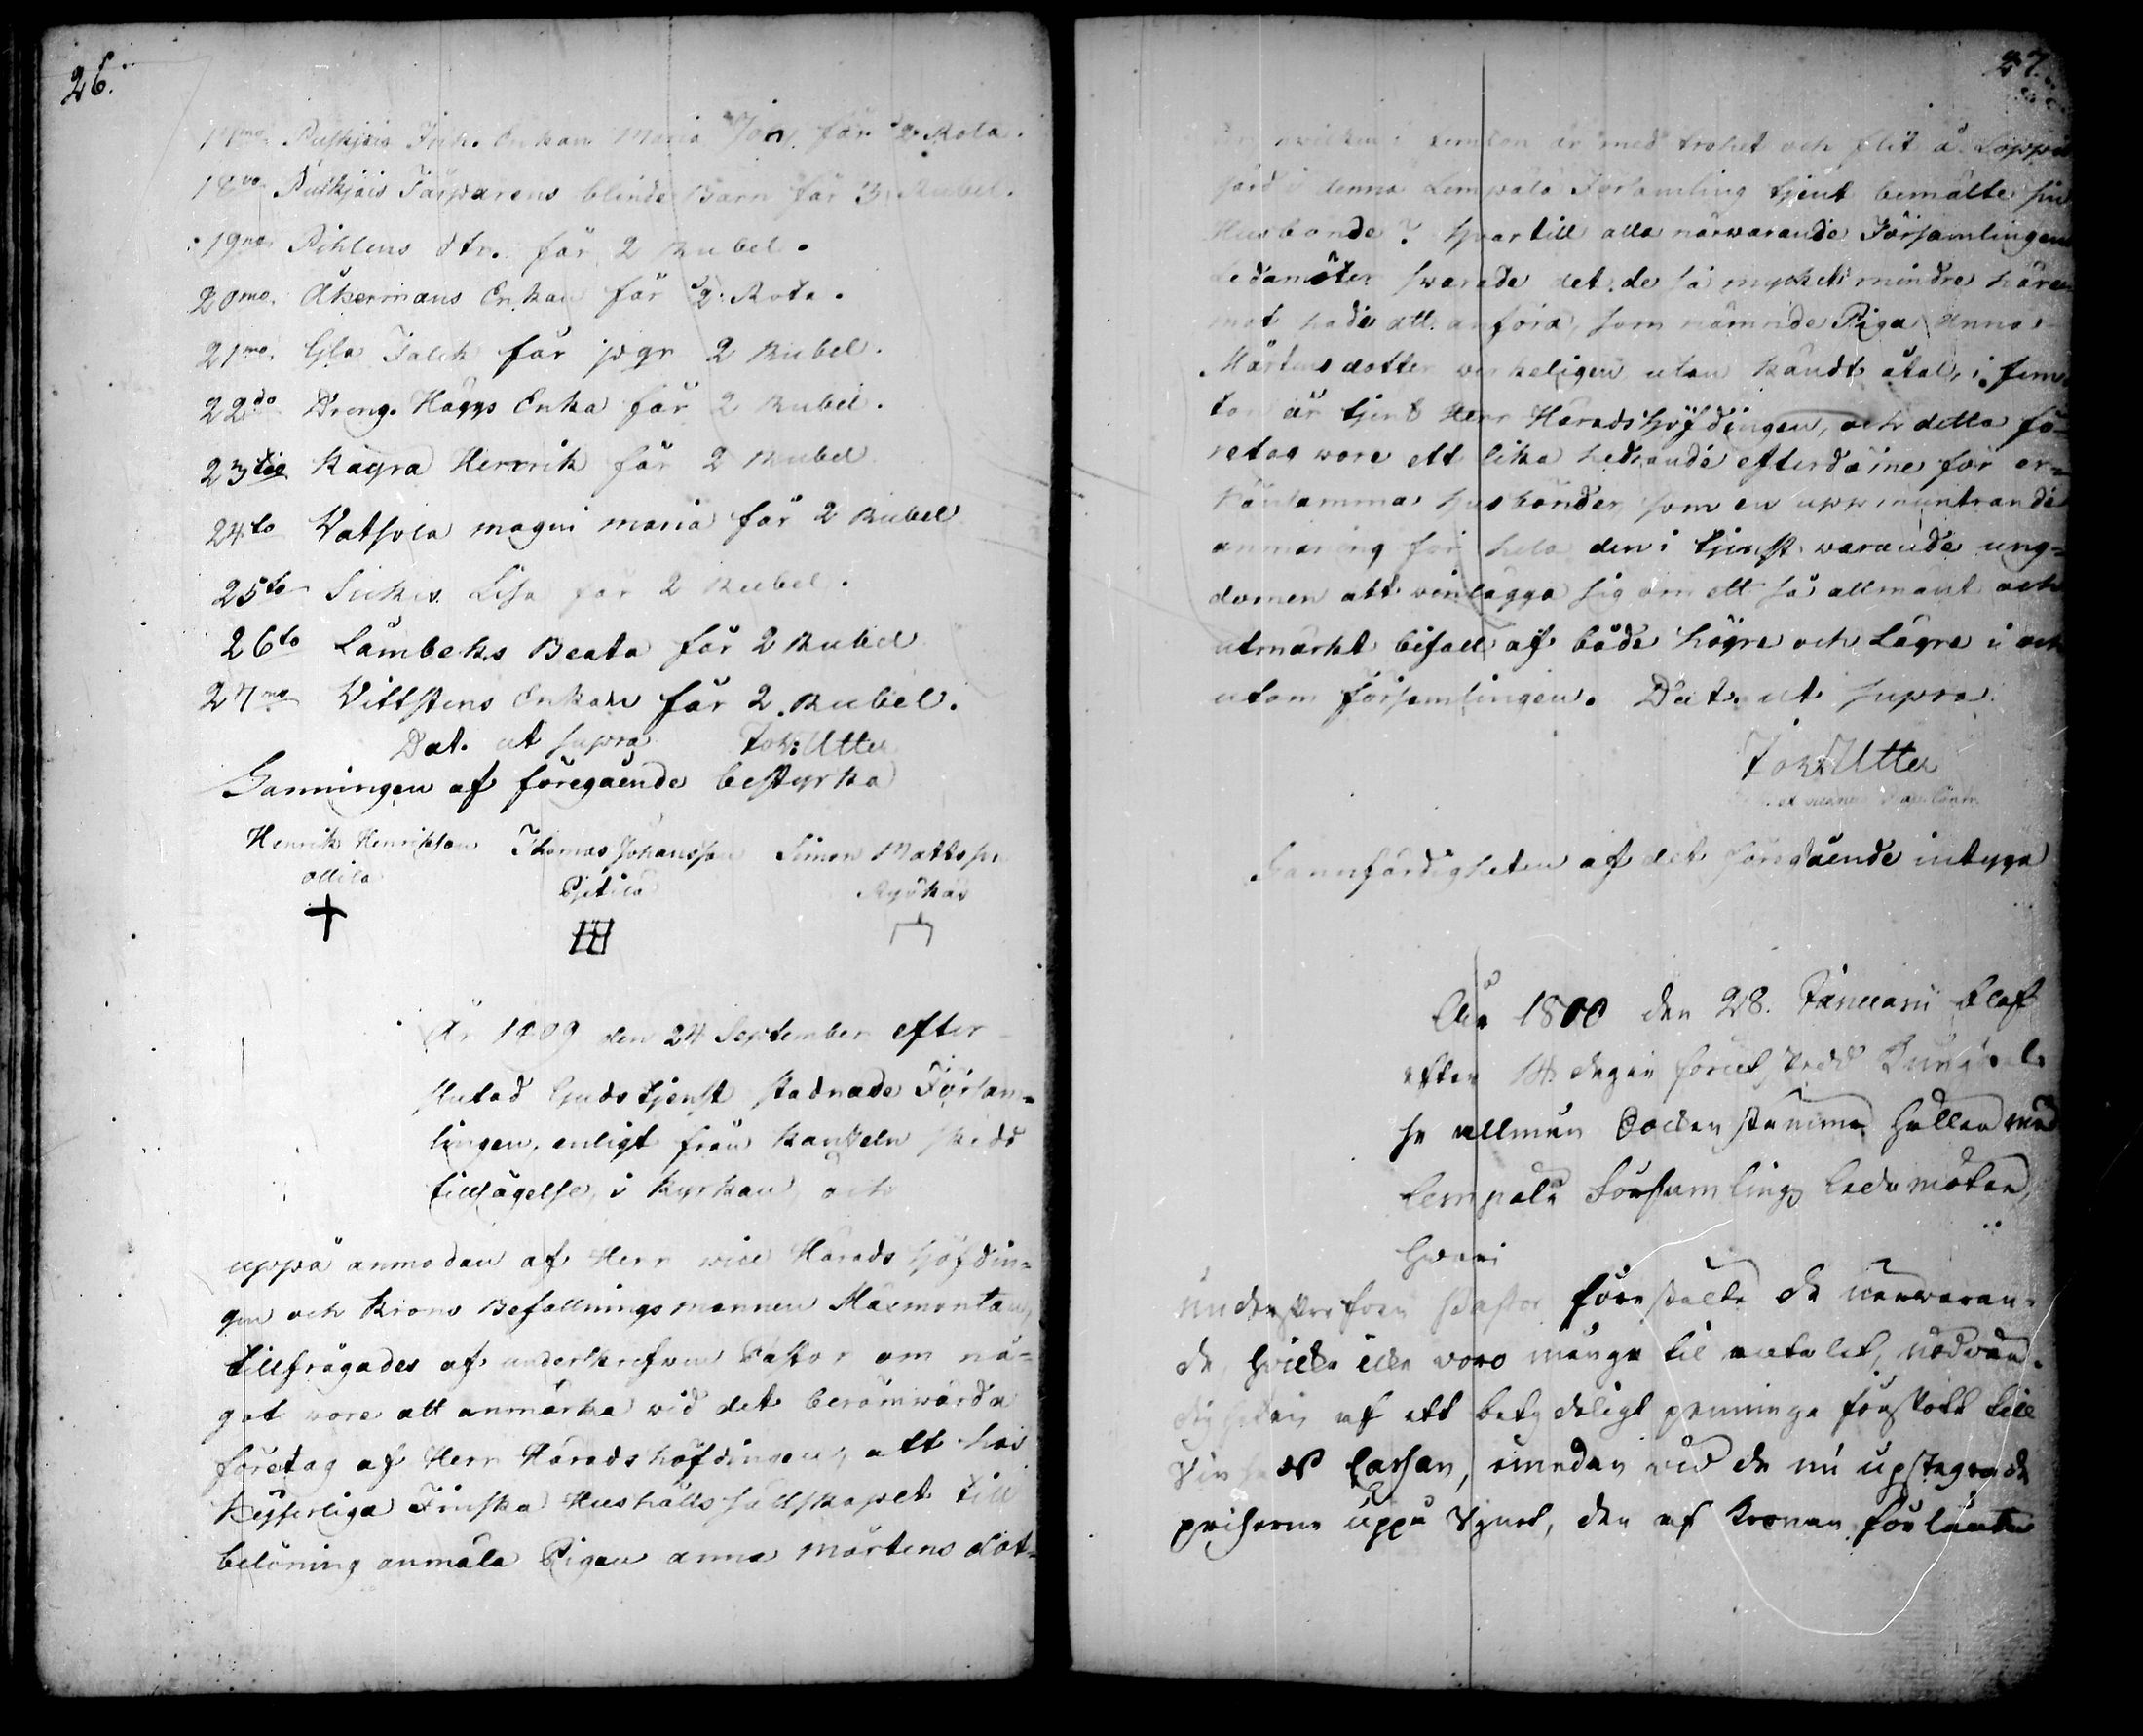 26.
17mo Puskjais Enkan Maria får 2 Rubel.
18vo Puskjais Casparens blinda Barn får 3 Rubel.
19no Pihlens får 2 Rubel.
20mo. Åkermans Enkan får 2 Rubel.
21mo. Gla får 2 Rubel.
22do Dreng. Häggs Enka får 2 Rubel.
23tio Kägra Henrik får 2 Rubel
24to Vatsola maria får 2 Rubel
25to Lisa får 2 Rubel.
26to Lambeks Beata får 2 Rubel
27mo Vittstens Enkan får 2 Rubel.
Dat. ut supra Joh: Utter
Sanningen af föregående bestyrka
Henrik Henriksson Thomas Johansson Simon Mattsson
Ollila
År 1809 den 24 September efter
slutad Gudstjenst stadnade Försam=
lingen, enligt från kantzeln skedd
tillsägelse, i Kyrkan, och
uppå anmodan af Herr vice Härads Höfdin=
gen och Krono Befallningsmannen Maxmontan,
tillfrågades af underskrefwen Pastor om nå=
got wore att anmärka wid det berömwärda
företag af Herr Häradshöfdingen, att hos
Kejserliga Finska Hushålls sällskapet till
belöning anmäla Pigan Anna Mårtens dot=
27.
hwilken i femton år med trohet och flit å Loppis
gård i denna Lempälä Församling tjent bemälte sin
Husbonde? Hwartill alla närwarande Församlingens
Ledamöter swarade det de så mycket mindre häre=
mot hade att anföra, som nämnde Piga Anna
Mårtens dotter werkeligen utan kändt åtal, i fem=
ton år tjent Herr Häradshöfdingen, och detta fö=
retag wore ett lika hedrande efterdöme för er=
käntsamma husbönder, som en uppmuntrande
anmaning för hela den i tjenst warande ung=
domen att winlägga sig om ett så allmänt och
utmärkt bifall af både högre och Lägre i och
utom församlingen. Dat. ut supra.
Joh: Utter
Sannfärdigheten af det föregående intyga
den 28. Januarii
efter 14 dagar förut skedd Kungörel=
se allmän Sockenstämma hållen med
Lempälä Församlings Ledamöter,
hwari
Underskrefven Pastor förestälte de närwaran=
de, hwilka icke woro många til antalet, nödvän=
digheten af ett betydeligt penninge förskott till
Cassan, emedan wid de nu upstegrade
priserne uppå Spnml, den af Kronan förlänte